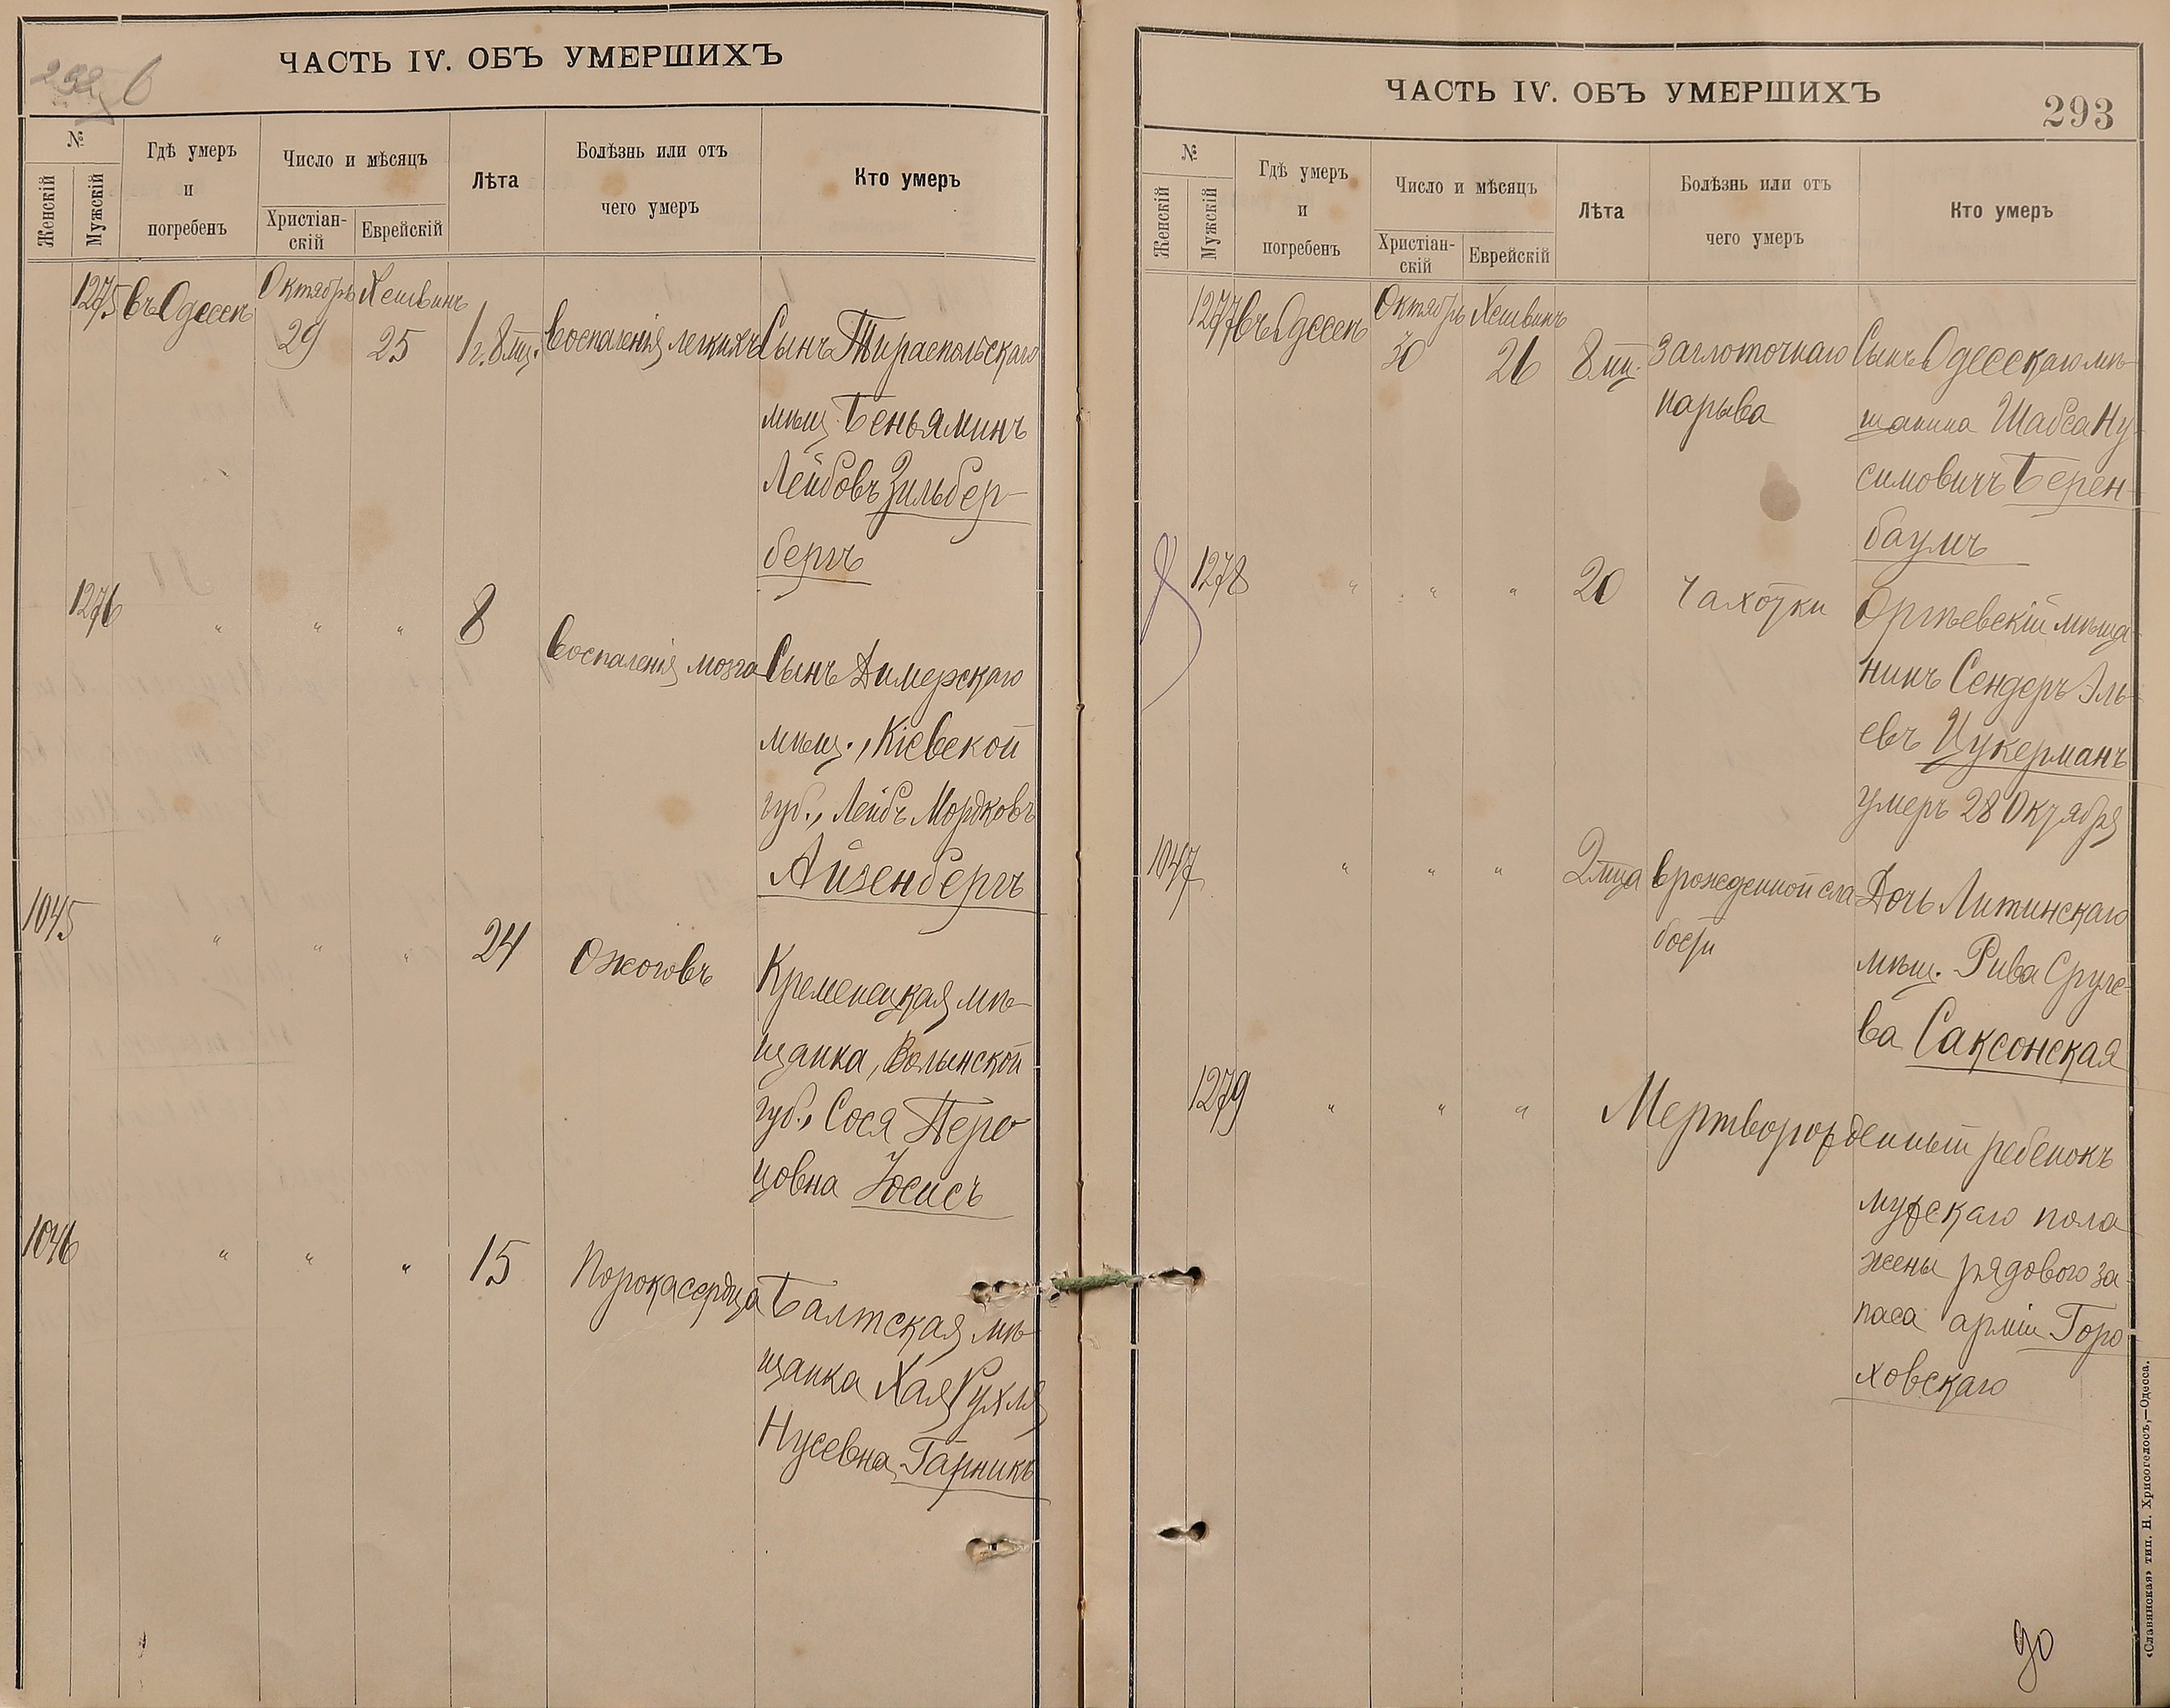 ЧАСТЬ IV. ОБЪ УМЕРШИХЪ
№
Женскій
Мужскій
Гдѣ умеръ
и
погребенъ
Число и мѣсяцъ
Христіан-
скій
Еврейскій
Лѣта
Болѣзнь или отъ
чего умеръ
Кто умеръ
1275 въ Одессѣ Октябрь Хешвинъ
29 25 1 г. 8 мц. воспаленія легкихъ Сынъ Тираспольскаго
мѣщ. Беньяминъ
Лейбовъ Зильбер-
бергъ
1276 " " " 8 воспаленія мозга Сынъ Димерскаго
мѣщ., Кіевской
губ., Лейбъ Мордковъ
Айзенбергъ
1045 " " " 24 Ожоговъ Кременецкая мѣ-
щанка, Волынской
губ., Сося Перо
цовна Юсисъ
1046 " " " 15 Порока сердца Балтская мѣ-
щанка Хая Рухля
Нусевна Гарникъ
ЧАСТЬ IV. ОБЪ УМЕРШИХЪ
293
№
Женскій
Мужскій
Гдѣ умеръ
и
погребенъ
Число и мѣсяцъ
Христіан-
скій
Еврейскій
Лѣта
Болѣзнь или отъ
чего умеръ
Кто умеръ
1277 въ Одессѣ Октябрь Хешвинъ
30 26 8 мц. Заглоточнаго Сынъ Одесскаго мѣ-
нарыва щанина Шабса Ну-
симовичъ Берен-
баумъ
1278 " " " 20 Чахотки Оргѣевскій мѣща-
нинъ Сендеръ Эль-
евъ Цукерманъ
умеръ 28 Октября
1047 " " " 2 мца врожденной сла- Дочь Литинскаго
бости мѣщ. Рива Сруле-
ва Саксонская
1279 " " " Мертворожденный ребенокъ
мужскаго пола
жены рядового за-
паса арміи Горо
ховскаго
«Славянская» тип. Н. Хрисогелосъ,—Одесса.